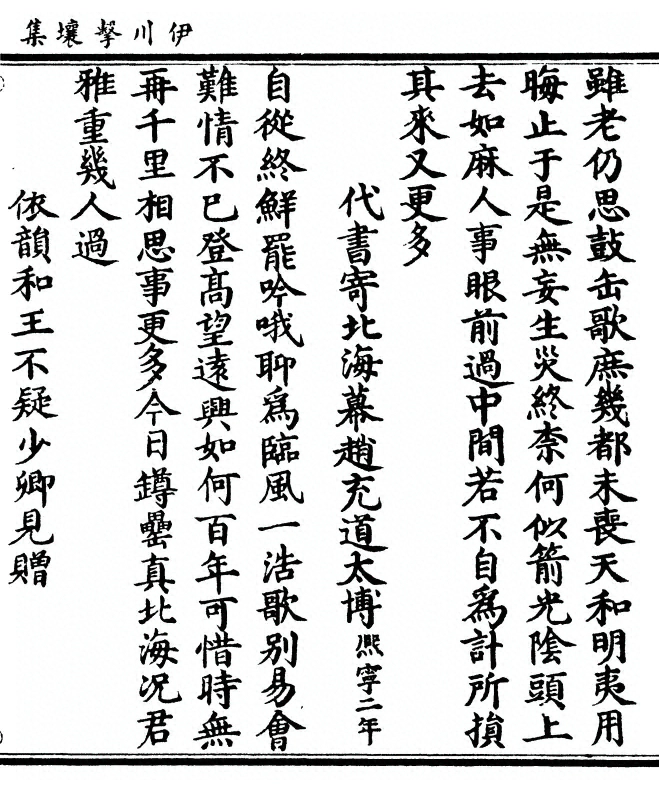 伊川擊壤集
雖老仍思鼓缶歌庶幾都未喪天和明夷用
晦止于是無妄生災終柰何似箭光陰頭上
去如麻人事眼前過中間若不自爲計所損
其來又更多
代書寄北海幕趙充道太博熙寧二年
自從終鮮罷吟哦聊爲臨風一浩歌別易會
難情不已登高望遠興如何百年可惜時無
再千里相思事更多今日罇罍真北海況君
雅重幾人過
依韻和王不疑少卿見贈